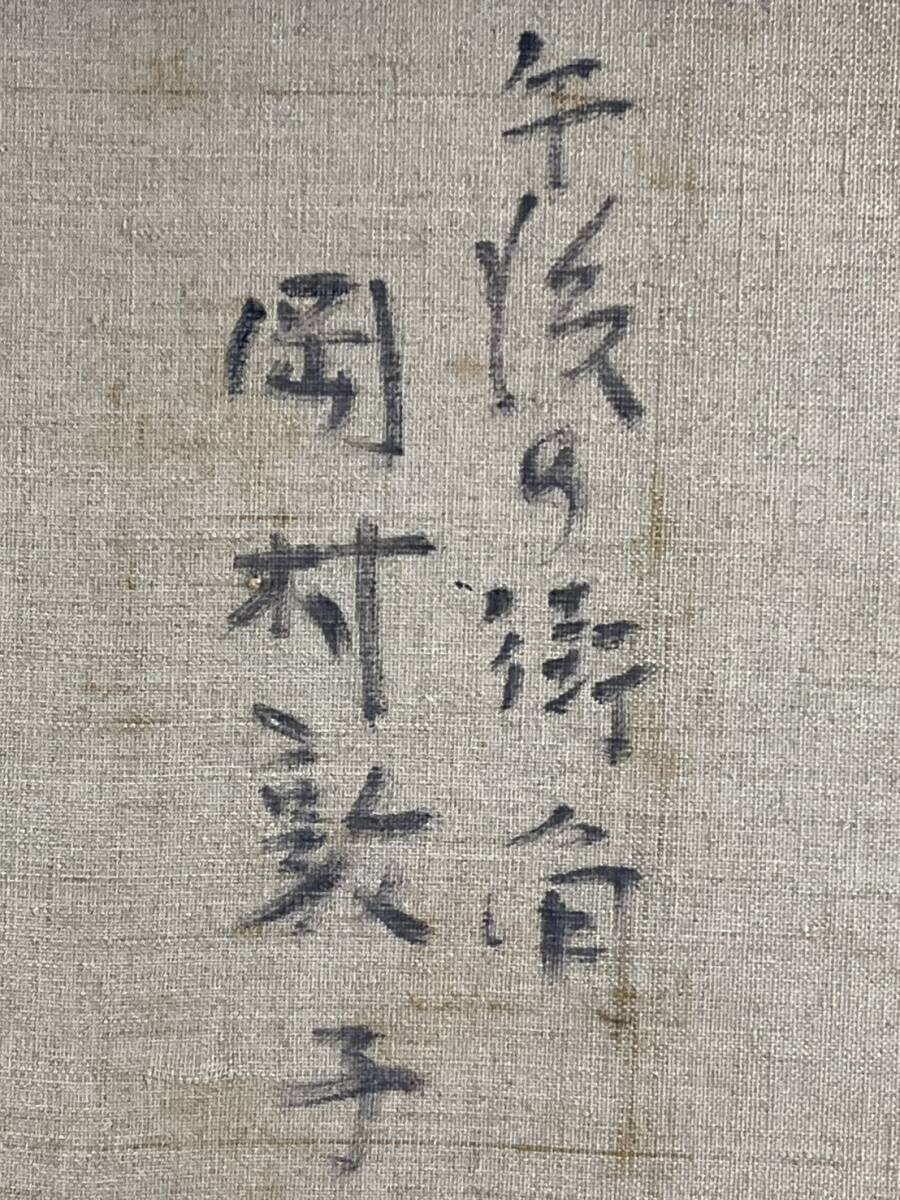 午後の街角
岡村敦子